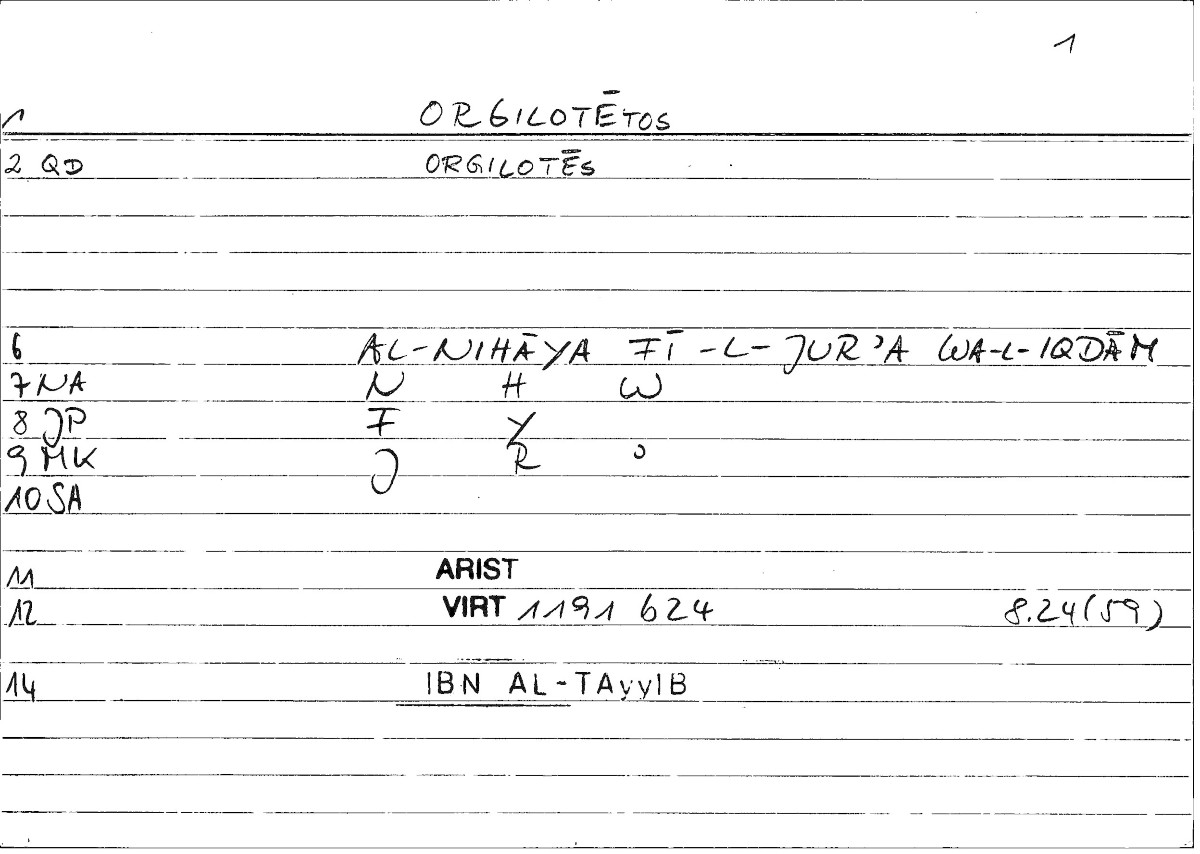 1
1 ORGILOTĒTOS
2 QD ORGILOTĒS
6 AL-NIHĀYA FĪ-L-JURʾA WA-L-IQDĀM
7 NA N H W
8 JP F Y
9 MK J R ʾ
10 SA
11 ARIST
12 VIRT 1191 624 8.24(59)
14 IBN AL-TAyyIB